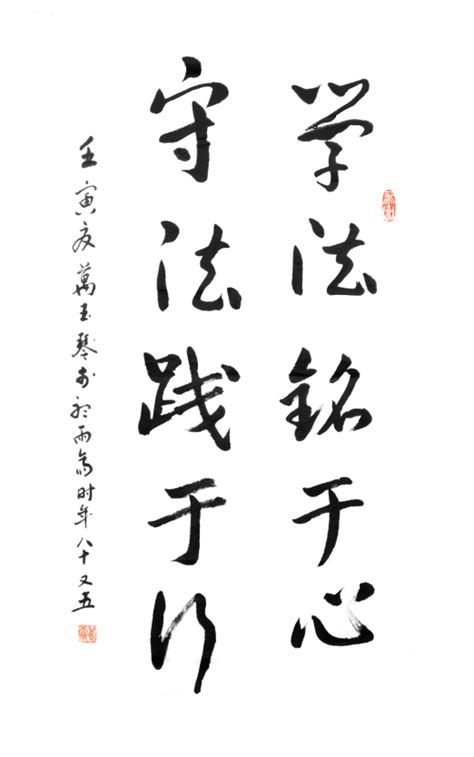 学法铭于心
守法践于行
壬寅夏萬玉琴书于听雨斋时年八十又五